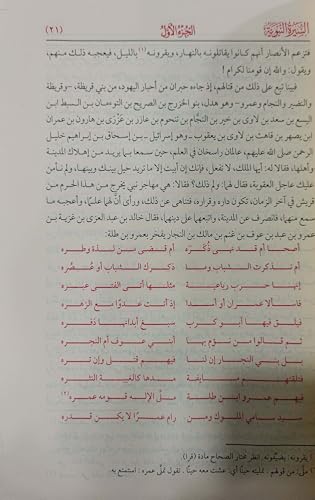 السِّيرَةُ النَّبَوِيَّةُ الجُزءُ الأَوَّلُ (٢١)
فتزعم الأنصار أنهم كانوا يقاتلونه بالنهار، ويقرونه(١) بالليل، فيعجبه ذلك منهم،
ويقول: والله إن قومنا لكرام!
فبينا تبع على ذلك من قتالهم، إذ جاءه حبران من أحبار اليهود، من بني قريظة، -وقريظة
والنضير والنجام وعمرو- وهو هدل، بنو الخزرج بن الصريح بن التومان بن السبط بن
اليسع بن سعد بن لاوى بن خير بن النجام بن تنحوم بن عازر بن عزرى بن هارون بن عمران
ابن يصهر بن قاهث بن لاوى بن يعقوب -وهو إسرائيل- بن إسحاق بن إبراهيم خليل
الرحمن صلى الله عليهم، عالمان راسخان في العلم، حين سمعا بما يريد من إهلاك المدينة
وأهلها، فقالا له: أيها الملك، لا تفعل، فإنك إن أبيت إلا ما تريد حيل بينك وبينها، ولم نأمن
عليك عاجل العقوبة، فقال لهما: ولم ذلك؟ فقالا: هي مهاجر نبي يخرج من هذا الحرم من
قريش في آخر الزمان، تكون داره وقراره، فتناهى عن ذلك، ورأى أن لهما علما، وأعجبه ما
سمع منهما، فانصرف عن المدينة، واتبعهما على دينهما، فقال خالد بن عبد العزى بن غزية بن
عمرو بن عبد بن عوف بن غنم بن مالك بن النجار يفخر بعمرو بن طلة:
أصحا أم قد نهى ذُكَرَه أم قضى من لذة وطره
أم تذكرت الشباب وما ذكرك الشباب أو عُصُره
إنها حرب رباعية مثلها أتى الفتى عبره
فاسألا عمران أو أسدا إذ أتت عدوا مع الزهره
فيلق فيها أبو كرب سبغ أبدانها ذفره
ثم قالوا من نؤم بها أبني عوف أم النجره
بل بني النجار إن لنا فيهم قتلى وإن تره
فتلقتهم مسايفة مدها كالغبية النثره
فيهم عمرو ابن طلة ملى الإله قومه عمره(٢)
سيد سامي الملوك ومن رام عمرا لا يكن قدره
١ يقرونه: يضيفونه. انظر مختار الصحاح مادة (قرا)
٢ ملى: من قولهم. تمليته حينًا أي: عشت معه حينًا. تقول تملى عمره: استمتع به.